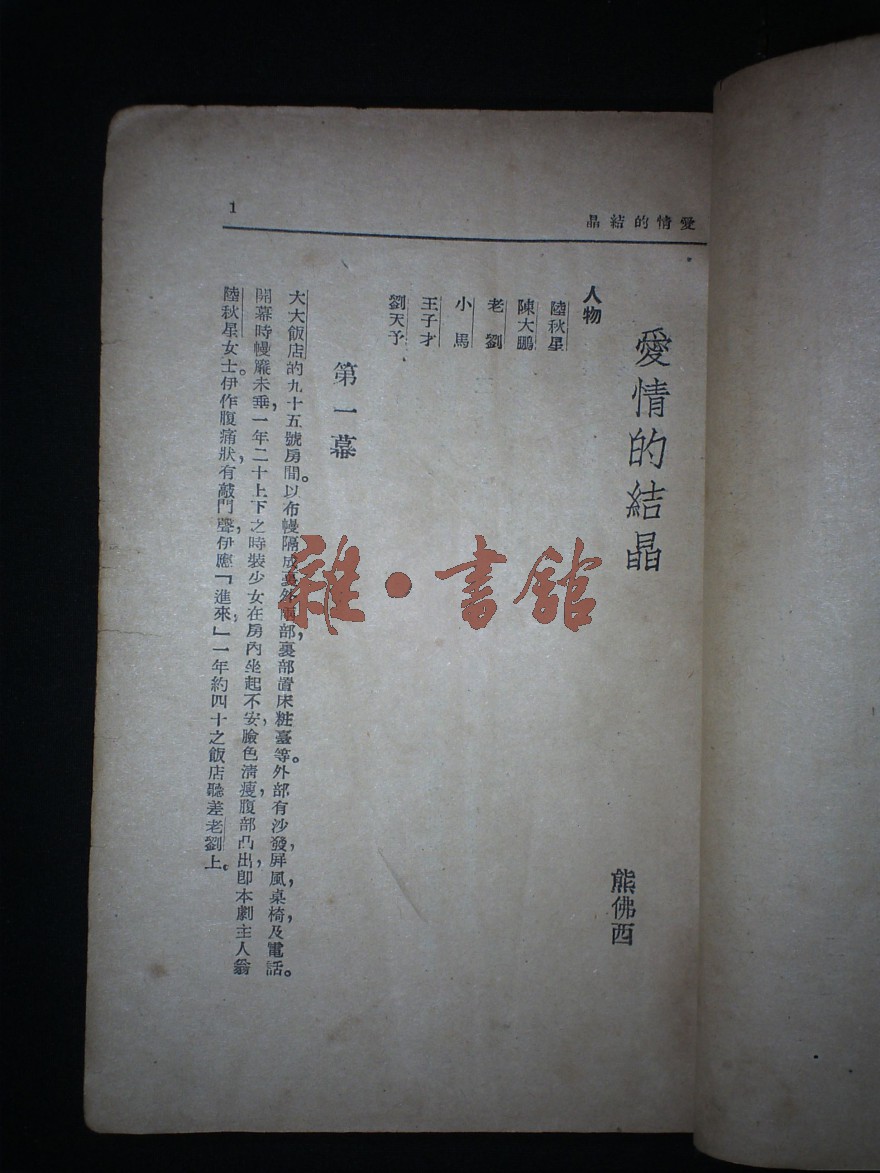 愛情的結晶
1
愛情的結晶
熊佛西
人物
陸秋星
陳大鵬
老劉
小馬
王子才
劉天予
第一幕
大大飯店的九十五號房間。以布幔隔成裏外兩部，裏部置床粧臺等。外部有沙發，屏風，桌椅，及電話。
開幕時幔簾未垂，一年二十上下之時裝少女在房內坐起不安，臉色清瘦，腹部凸出，卽本劇主人翁
陸秋星女士。伊作腹痛狀，有敲門聲，伊應「進來」一年約四十之飯店聽差老劉上。
雜·書館